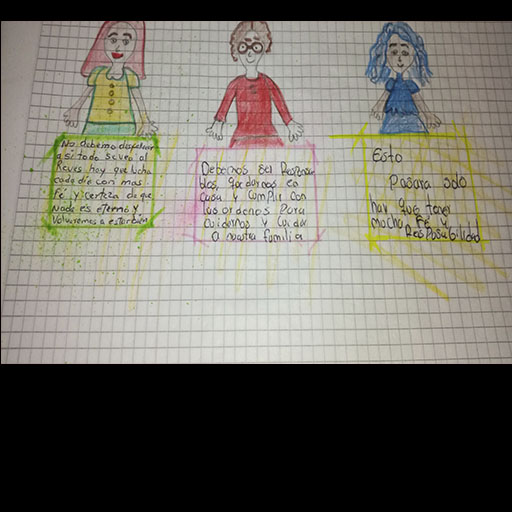 No debemo desfallecer
a si todo se vea al
Reves hay que lucha
cada dia con mas
fé y certeza de que
Nada es eterno y
Volveremos a estar bien
Debemos ser Responsa
bles, quedarnos en
casa y cumplir con
las ordenes para
cuidarnos y cuidar
a nuestra familia
Esto
Pasara solo
hay que tener
mucha Fé y
ResPosabilidad